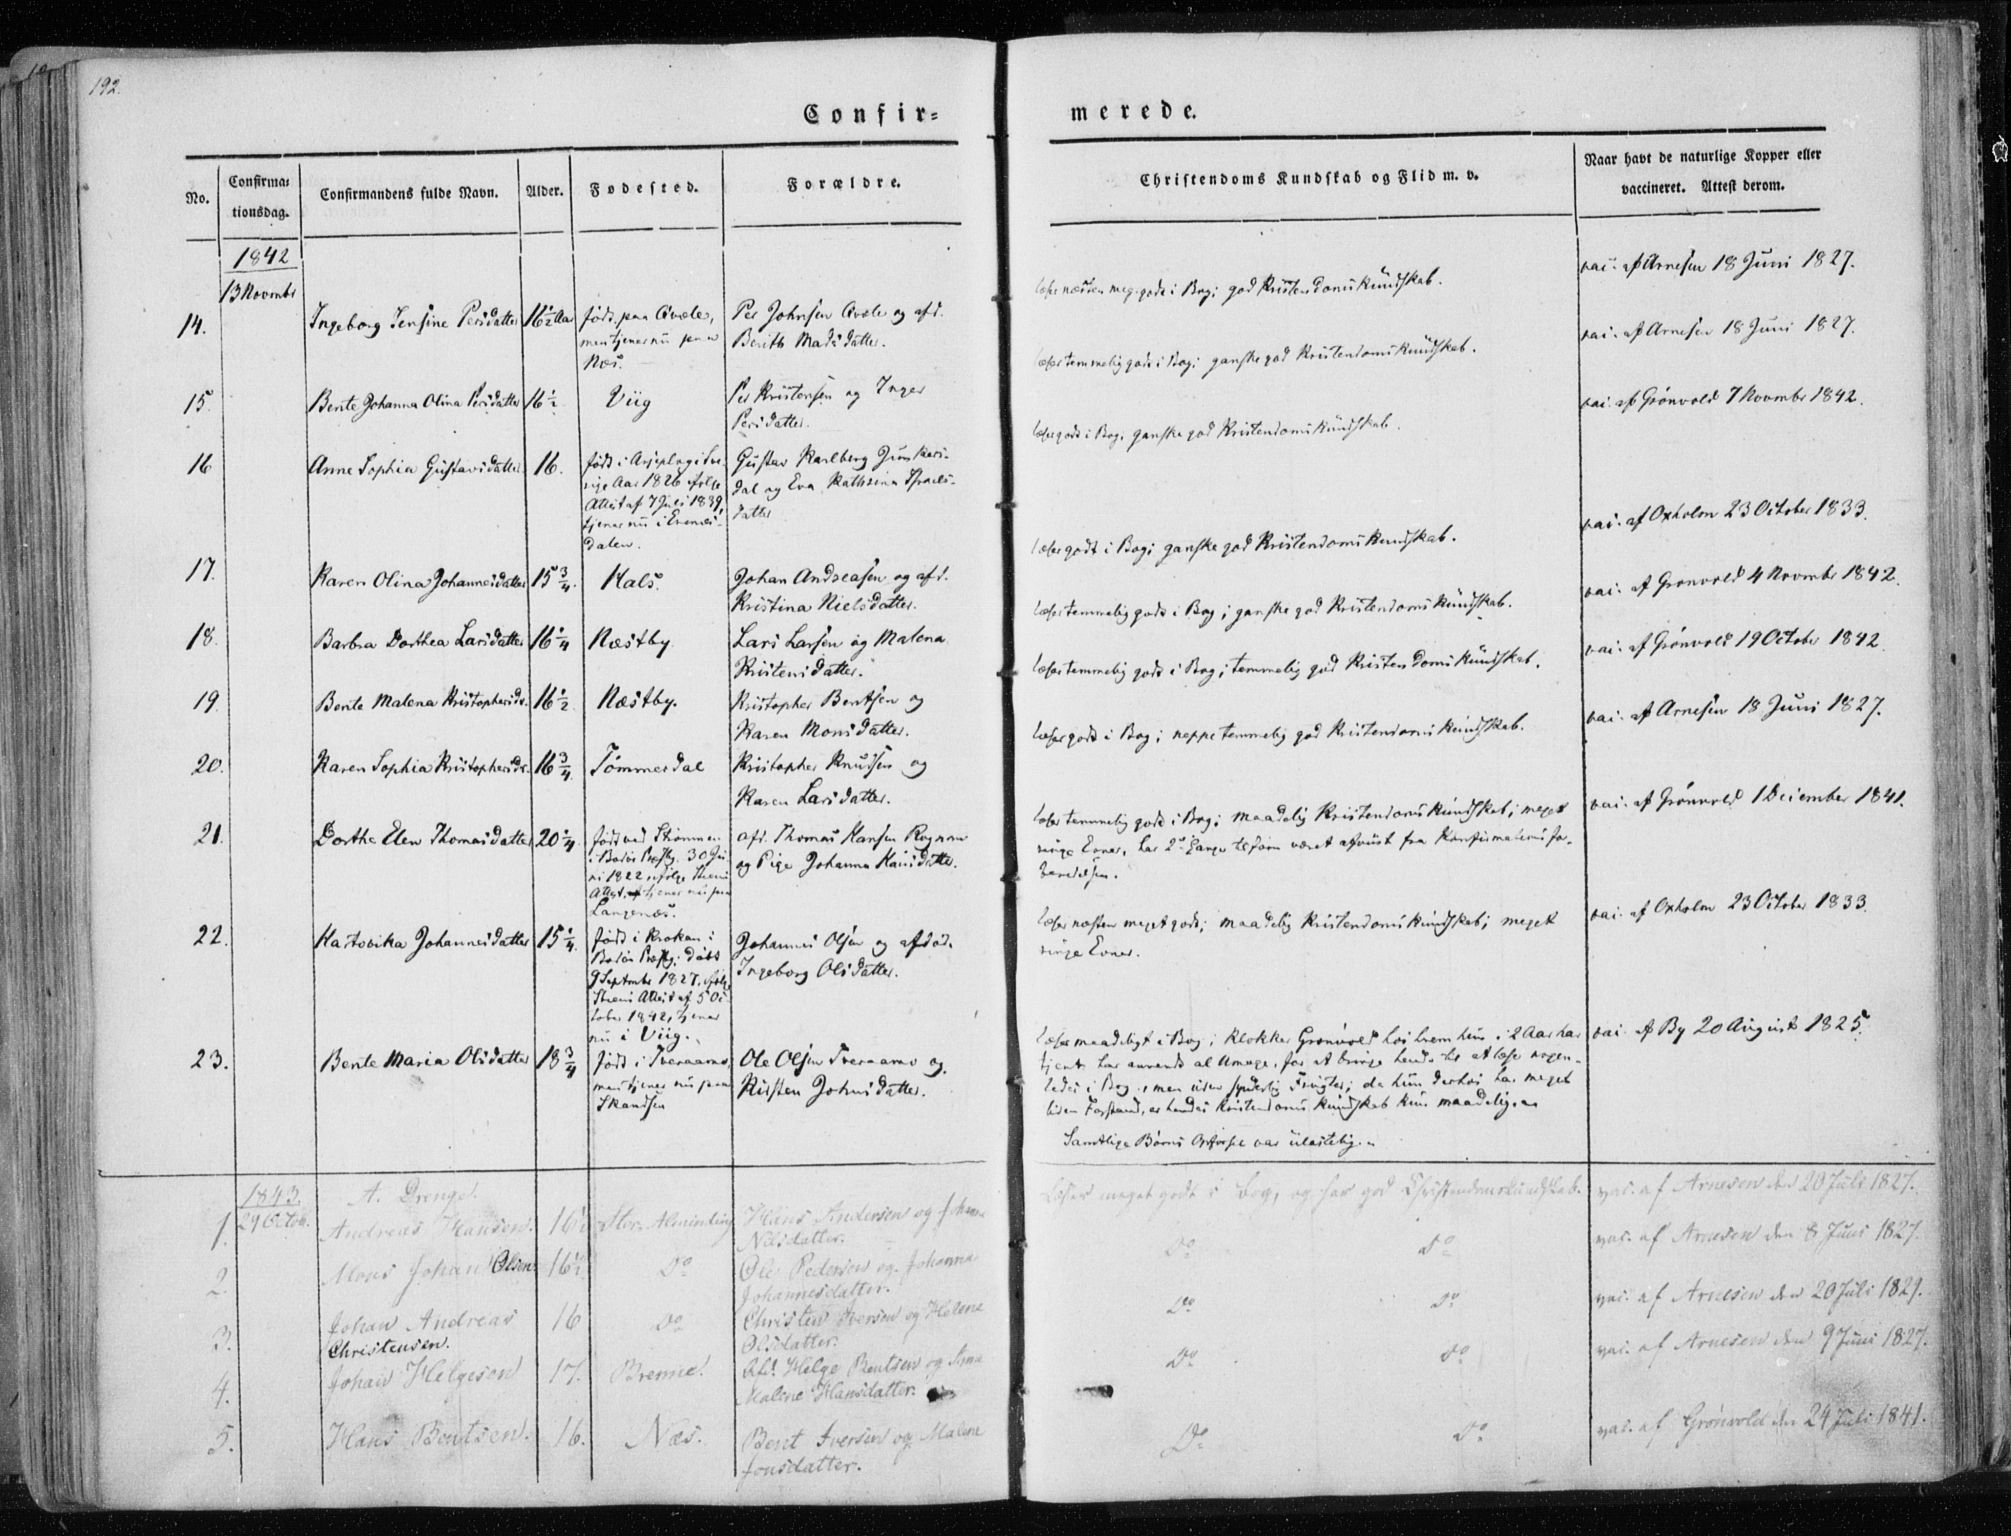 192.
Confir=
merede.
No.
Confirma=
tionsdag.
Confirmandens fulde Navn.
Alder.
Fødested.
Forældre.
Christendoms Kundskab og Flid m. v.
Naar havt de naturlige Kopper eller
vaccineret. Attest derom.
1842
13 Novembr
14.
Ingeborg Jensine Persdatter
16½ Aar
født paa Qvale,
men tjener nu paa
Næs.
Per Johnsen Qvale og afd.
Berith Madsdatter.
læser næsten meg. godt i Bog; god Kristendomskundskab.
vac. af Arnesen 18 Juni 1827.
15.
Bente Johanna Olina Persdatter
16½
Viig
Per Kristensen og Inger
Persdatter.
læser temmelig godt i Bog; ganske god Kristendomskundskab.
vac. af Arnesen 18 Juni 1827.
16
Anne Sophia Gustavsdatter
16.
født i Arjeplog i Sve-
rige Aar 1826 ifølge
Attest af 7 Juli 1839,
tjener nu i Evenæs-
dalen.
Gustav Karlberg Junkers-
dal og Eva Kathrina Israels-
datter
læser godt i Bog; ganske god Kristendomskundskab.
vac. af Grønvold 7 Novembr 1842.
17.
Karen Olina Johannesdatter
15¾.
Hals.
Johan Andreasen og afd.
Kristina Nielsdatter.
læser godt i Bog; ganske god Kristendomskundskab.
vac. af Oxholm 23 October 1833.
18.
Barbra Dorthea Larsdatter
16¼
Næstby
Lars Larsen og Malena
Kristensdatter.
læser temmelig godt i Bog; ganske god Kristendomskundskab.
vac. af Grønvold 4 Novembr 1842.
19.
Bente Malena Kristophersdr.
16½
Næstby.
Kristopher Bentsen og
Karen Monsdatter.
læser temmelig godt i Bog; temmelig god Kristendomskundskab.
vac. af Grønvold 19 October 1842.
20.
Karen Sophia Kristophersdr.
16¾
Tømmerdal
Kristopher Knudsen og
Karen Larsdatter.
læser godt i Bog; neppe temmelig god Kristendomskundskab.
vac. af Arnesen 18 Juni 1827.
21.
Dorthe Elen Thomasdatter
20¼
født ved Strømmen
i Bodøs Præstg. 30 Ju-
ni 1822, ifølge
Attest, tjener nu paa
Langenæs.
afd. Thomas Hansen Rognan
og Pige Johanna Hansdatter.
læser temmelig godt i Bog; maadelig Kristendomskundskab; meget
ringe Evner, har 2de Gange tilforn været afviist fra Konfirmations for-
beredelsen.
vac. af Grønvold 1 December 1841.
22.
Hartvika Johannesdatter
15¼.
født i Krokan i
Bodøs Præstg; døbt
9 Septembr 1827, ifølge
Attest af 5 Oc-
tober 1842, tjener
nu i Viig.
Johannes Olsen og afdød.
Ingeborg Olsdatter.
læser næsten meget godt; maadelig Kristendomskundskab; meget
ringe Evner.
vac. af Oxholm 23 October 1833.
23.
Bente Maria Olsdatter
18¾
født i Tveraamo,
men tjener nu paa
Skandsen
Ole Olsen Tveraamo og
Kirsten Johnsdatter.
læser maadeligt i Bog; Klokker Grønvold hos hvem hun i 2 Aar har
tjent har anvendt al Umage, for at bringe hende til at læse nogen-
ledes i Bog, men uden synderlig Frugter; da hun derhos har meget
liden Forstand, er hendes Kristendomskundskab kun maadelig.
Samtlige Børns Opførsel var ulastelig.
vac. af By 20 August 1825.
1843.
A. Drenge.
29 Octob.
1.
Andreas Hansen.
16½
Stor-Alminding
Hans Andersen og Johanna
Nilsdatter.
Læser meget godt i Bog, og har god Christendomskundskab.
vac. af Arnesen den 20 Juli 1827.
2.
Mons Johan Olsen
16½.
Do
Ole Pedersen og Johanna
Johannesdatter.
Do
Do
vac. af Arnesen den 8 Juni 1827.
3.
Johan Andreas
Christensen.
16
Do
Christen Iversen og Helene
Olsdatter.
Do
Do
vac. af Arnesen den 20 Juli 1829.
4.
Johan Helgesen
17.
Bremne.
Afd. Helge Bentsen og Ana
Malene Hansdatter.
Do
Do
vac. af Arnesen den 9 Juni 1827.
5.
Hans Bentsen.
16.
Næs.
Bent Iversen og Malene
Jonsdatter.
Do
Do
vac. af Grønvold den 24 Juli 1841.